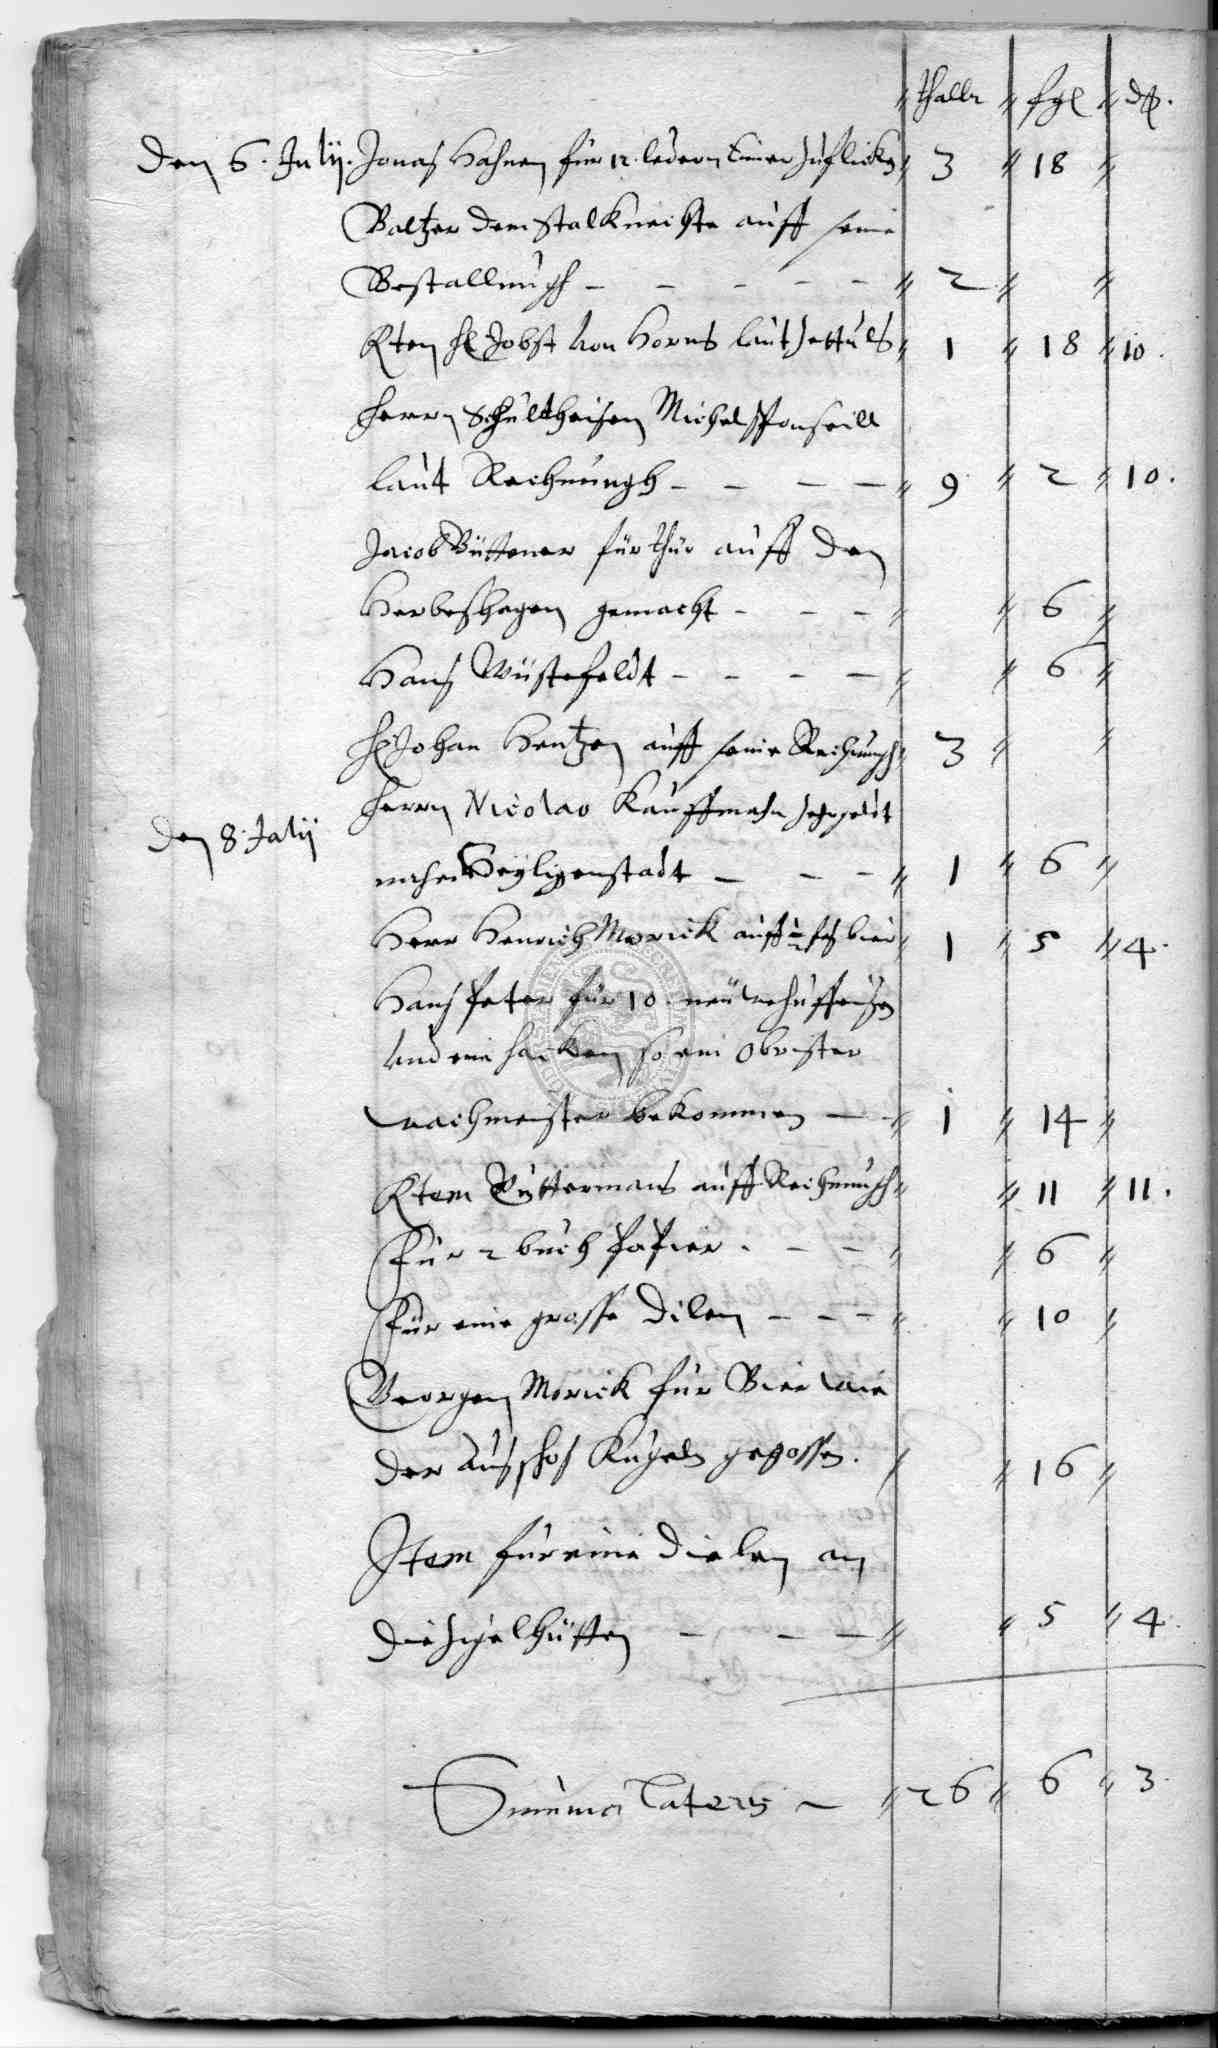 thallr fgl d
Den 6. Julij. Jonas Hahnen für 12. ledern Eimer zuflicken 3 18
Baltzer dem stalknechte auff seine
Bestallungh - - - - - 2
Jobst von Horns laut Zettuls 1 18 10.
Herrn Schultheisen Michel
laut Rechnungh - - - - 9 2 10.
Jacob Büttener für thür auff den
Herbeshagen gemacht - - - 6
Hans Wüstefeldt - - - - 6
Johan Hentzen auff seine Rechnungh 3
Herrn Nicolao Kauffmahn Zehrgeldt
Den 8. Julij
nacher Heyligenstadt - - - 1 6
Herr Henrich Morick auff fas bier 1 5 4.
Hans Peter für 10. neüwe huffeisen
und ein hacken so ein Obrister
wachmeister bekommen - - 1 14
auff Rechnungh 11 11.
Für 2 buch Papier - - - 6
Für eine grosse Dilen - - - 10
Georgen Morick für Bier wie
der Ausschos Kugeln gegossen. 16
Item für eine Dielen an
die Zigelhütten - - - 5 4.
Summa Lateris 26 6 3.